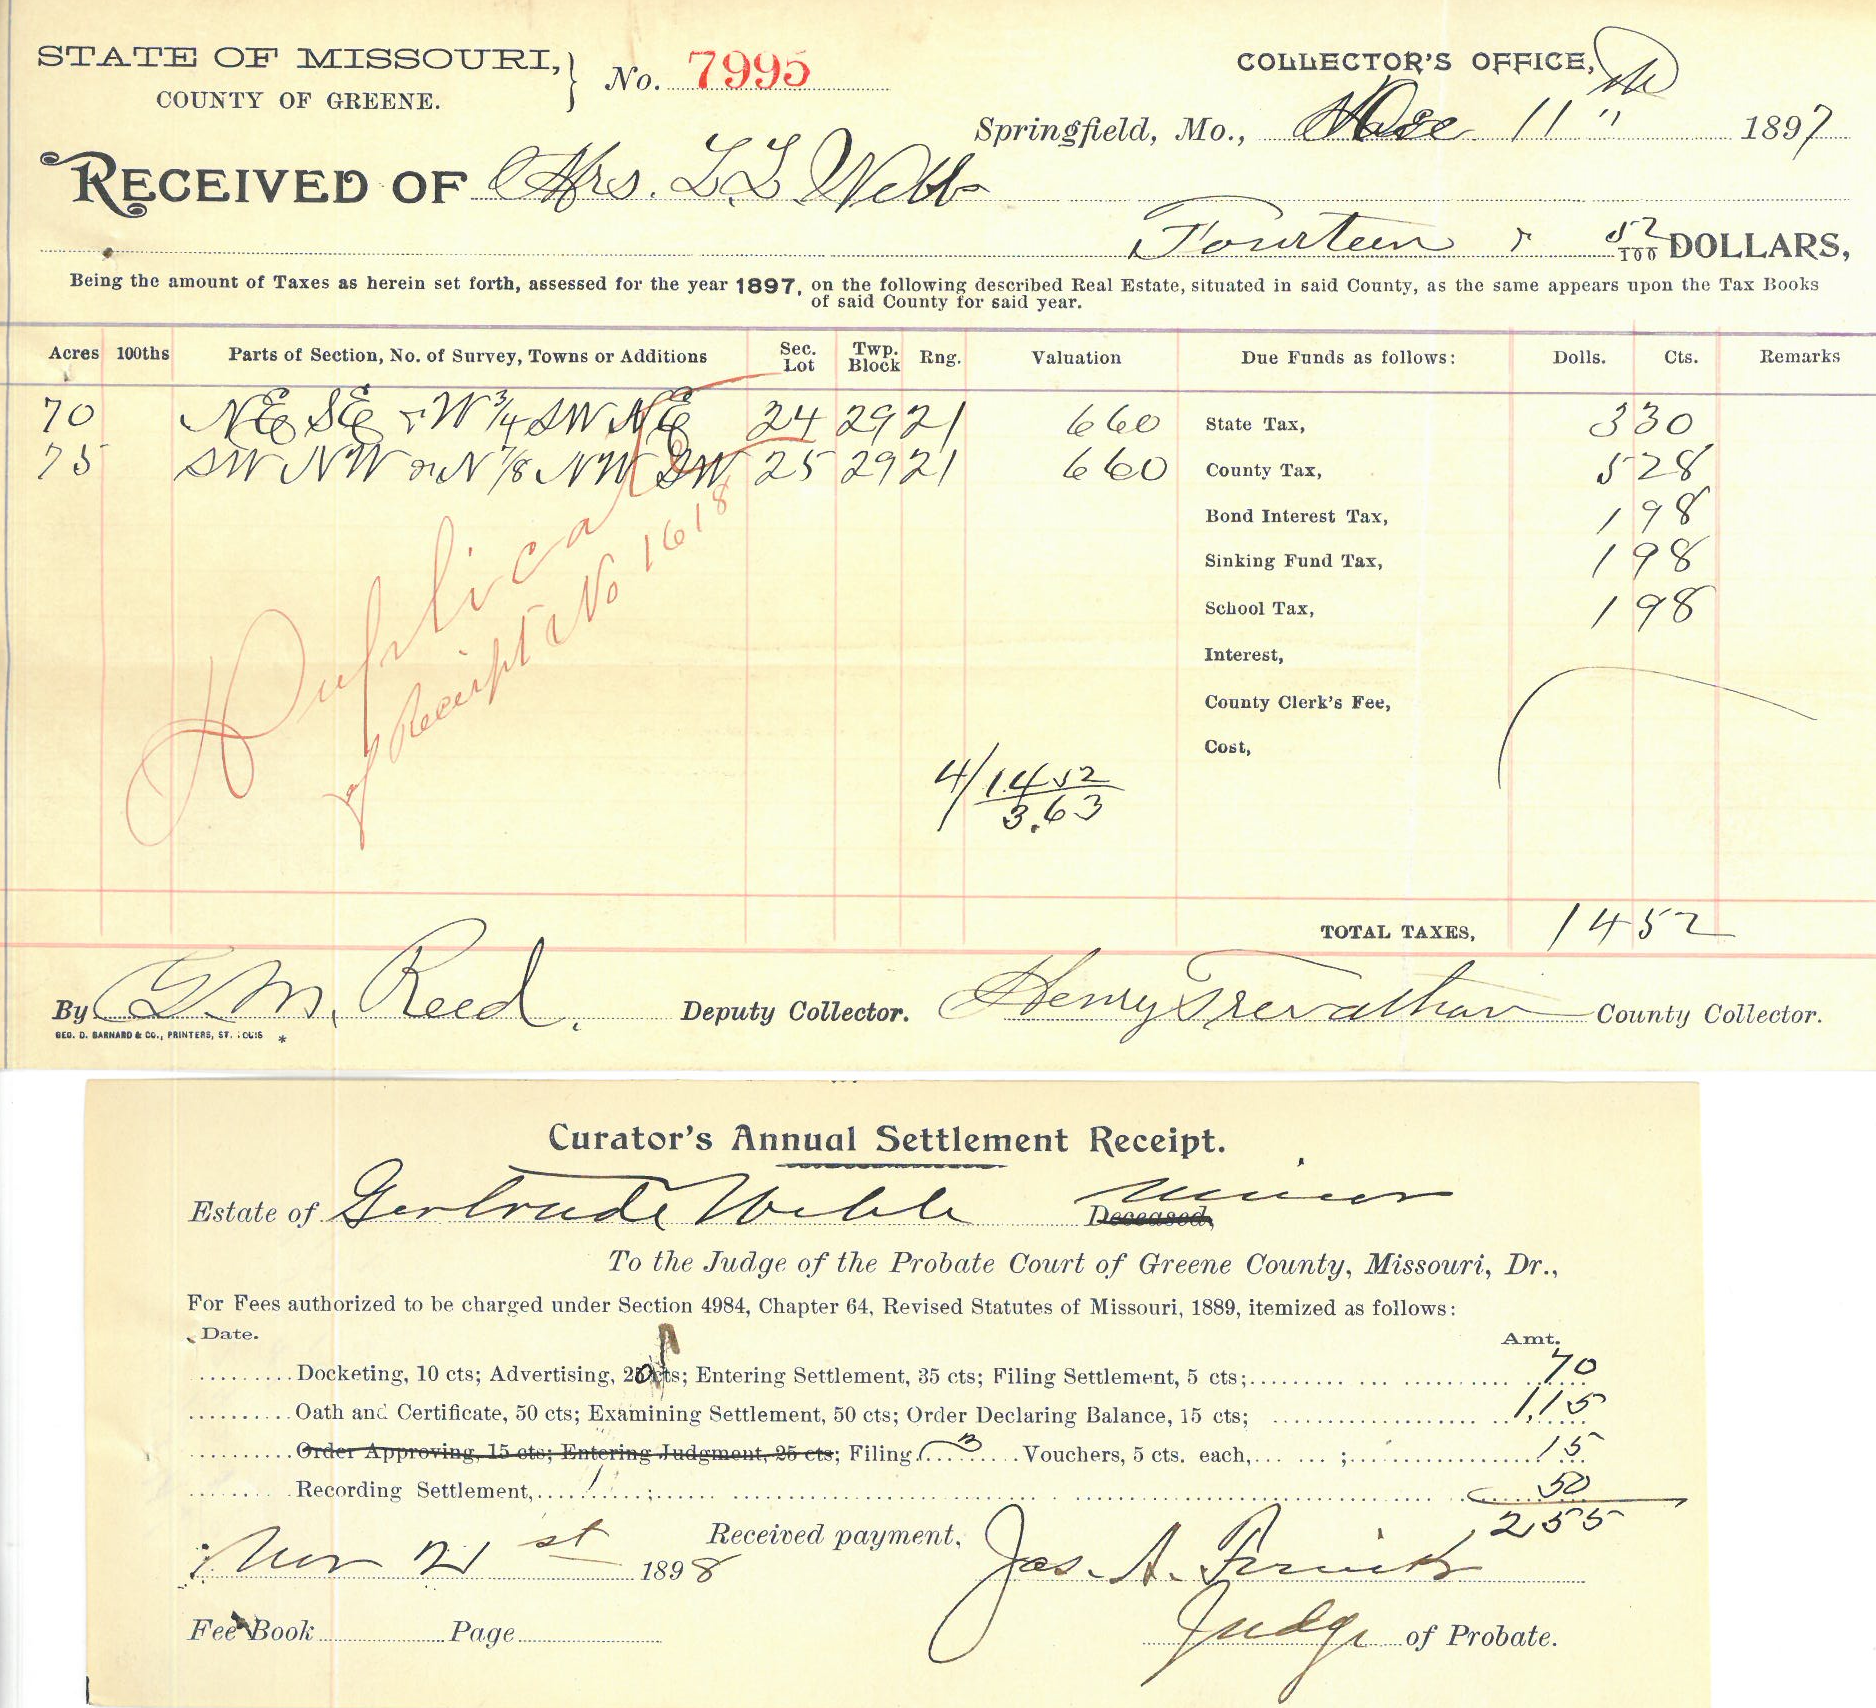 STATE OF MISSOURI,
COUNTY OF GREENE.
No. 7995
COLLECTOR'S OFFICE,
Springfield, Mo., Dec 11" 1897
RECEIVED OF Mrs. L. L. Webb
Fourteen & 52/100 DOLLARS,
Being the amount of Taxes as herein set forth, assessed for the year 1897, on the following described Real Estate, situated in said County, as the same appears upon the Tax Books
of said County for said year.
Acres 100ths Parts of Section, No. of Survey, Towns or Additions Sec. Lot Twp. Block Rng. Valuation Due Funds as follows: Dolls. Cts. Remarks
70 NE SE & W 3/4 SW NE 24 29 21 660 State Tax, 3 30
75 SW NW & N 7/8 NW SW 25 29 21 660 County Tax, 5 28
Bond Interest Tax, 1 98
Sinking Fund Tax, 1 98
School Tax, 1 98
Interest,
County Clerk's Fee,
Cost,
Duplicate
of Receipt No 1618
4/14 52
3.63
TOTAL TAXES, 14 52
By G. M. Reed. Deputy Collector. Henry Trevathan County Collector.
GEO. D. BARNARD & CO., PRINTERS, ST. LOUIS *
Curator's Annual Settlement Receipt.
Estate of Gertrude Webb minor Deceased,
To the Judge of the Probate Court of Greene County, Missouri, Dr.,
For Fees authorized to be charged under Section 4984, Chapter 64, Revised Statutes of Missouri, 1889, itemized as follows:
Date. Amt.
Docketing, 10 cts; Advertising, 20 cts; Entering Settlement, 35 cts; Filing Settlement, 5 cts; 70
Oath and Certificate, 50 cts; Examining Settlement, 50 cts; Order Declaring Balance, 15 cts; 1,15
Order Approving, 15 cts; Entering Judgment, 25 cts; Filing 3 Vouchers, 5 cts. each, ; 15
Recording Settlement, 1 ; 50
2,55
Nov 21st 1898 Received payment, Jas. A.
Judge of Probate.
Fee Book Page